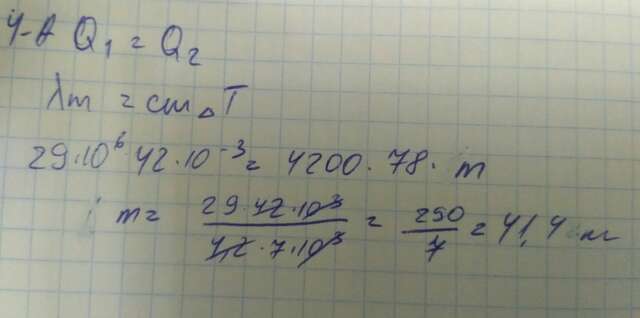 4-A Q₁ = Q₂
λm = cm△T
29·10⁶·42·10⁻³ = 4200·78·m
m = 29·42·10³ / 42·7·10³ = 290 / 7 = 41,4